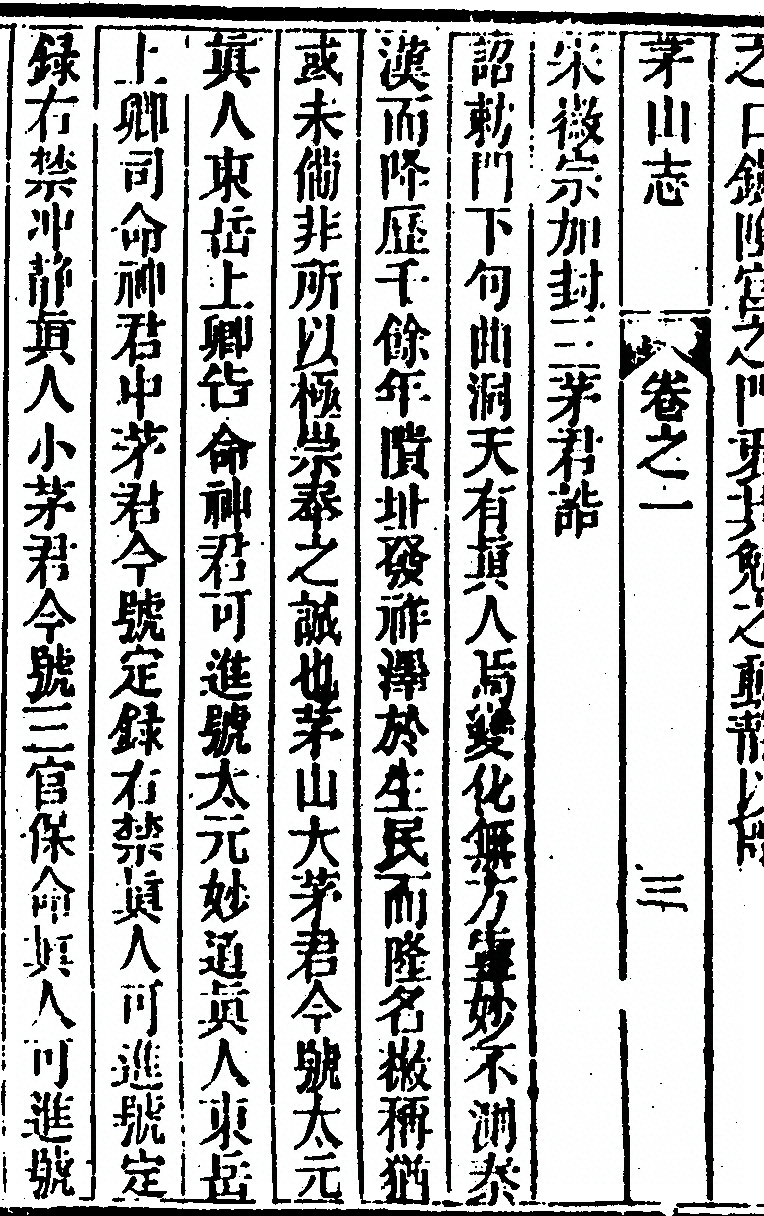 之口鎮陰宮之門更共勉之
茅山志 卷之一 三
宋徽宗加封三茅君誥
詔勅門下句曲洞天有眞人焉變化無方靈妙不測秦
漢而降歷千餘年隤址發祚澤於生民而隆名徽稱猶
或未備非所以極崇奉之誠也茅山大茅君今號太元
眞人東岳上卿司命神君可進號太元妙道眞人東岳
上卿司命神君中茅君今號定録右禁眞人可進號定
録右禁冲靜眞人小茅君今號三官保命眞人可進號